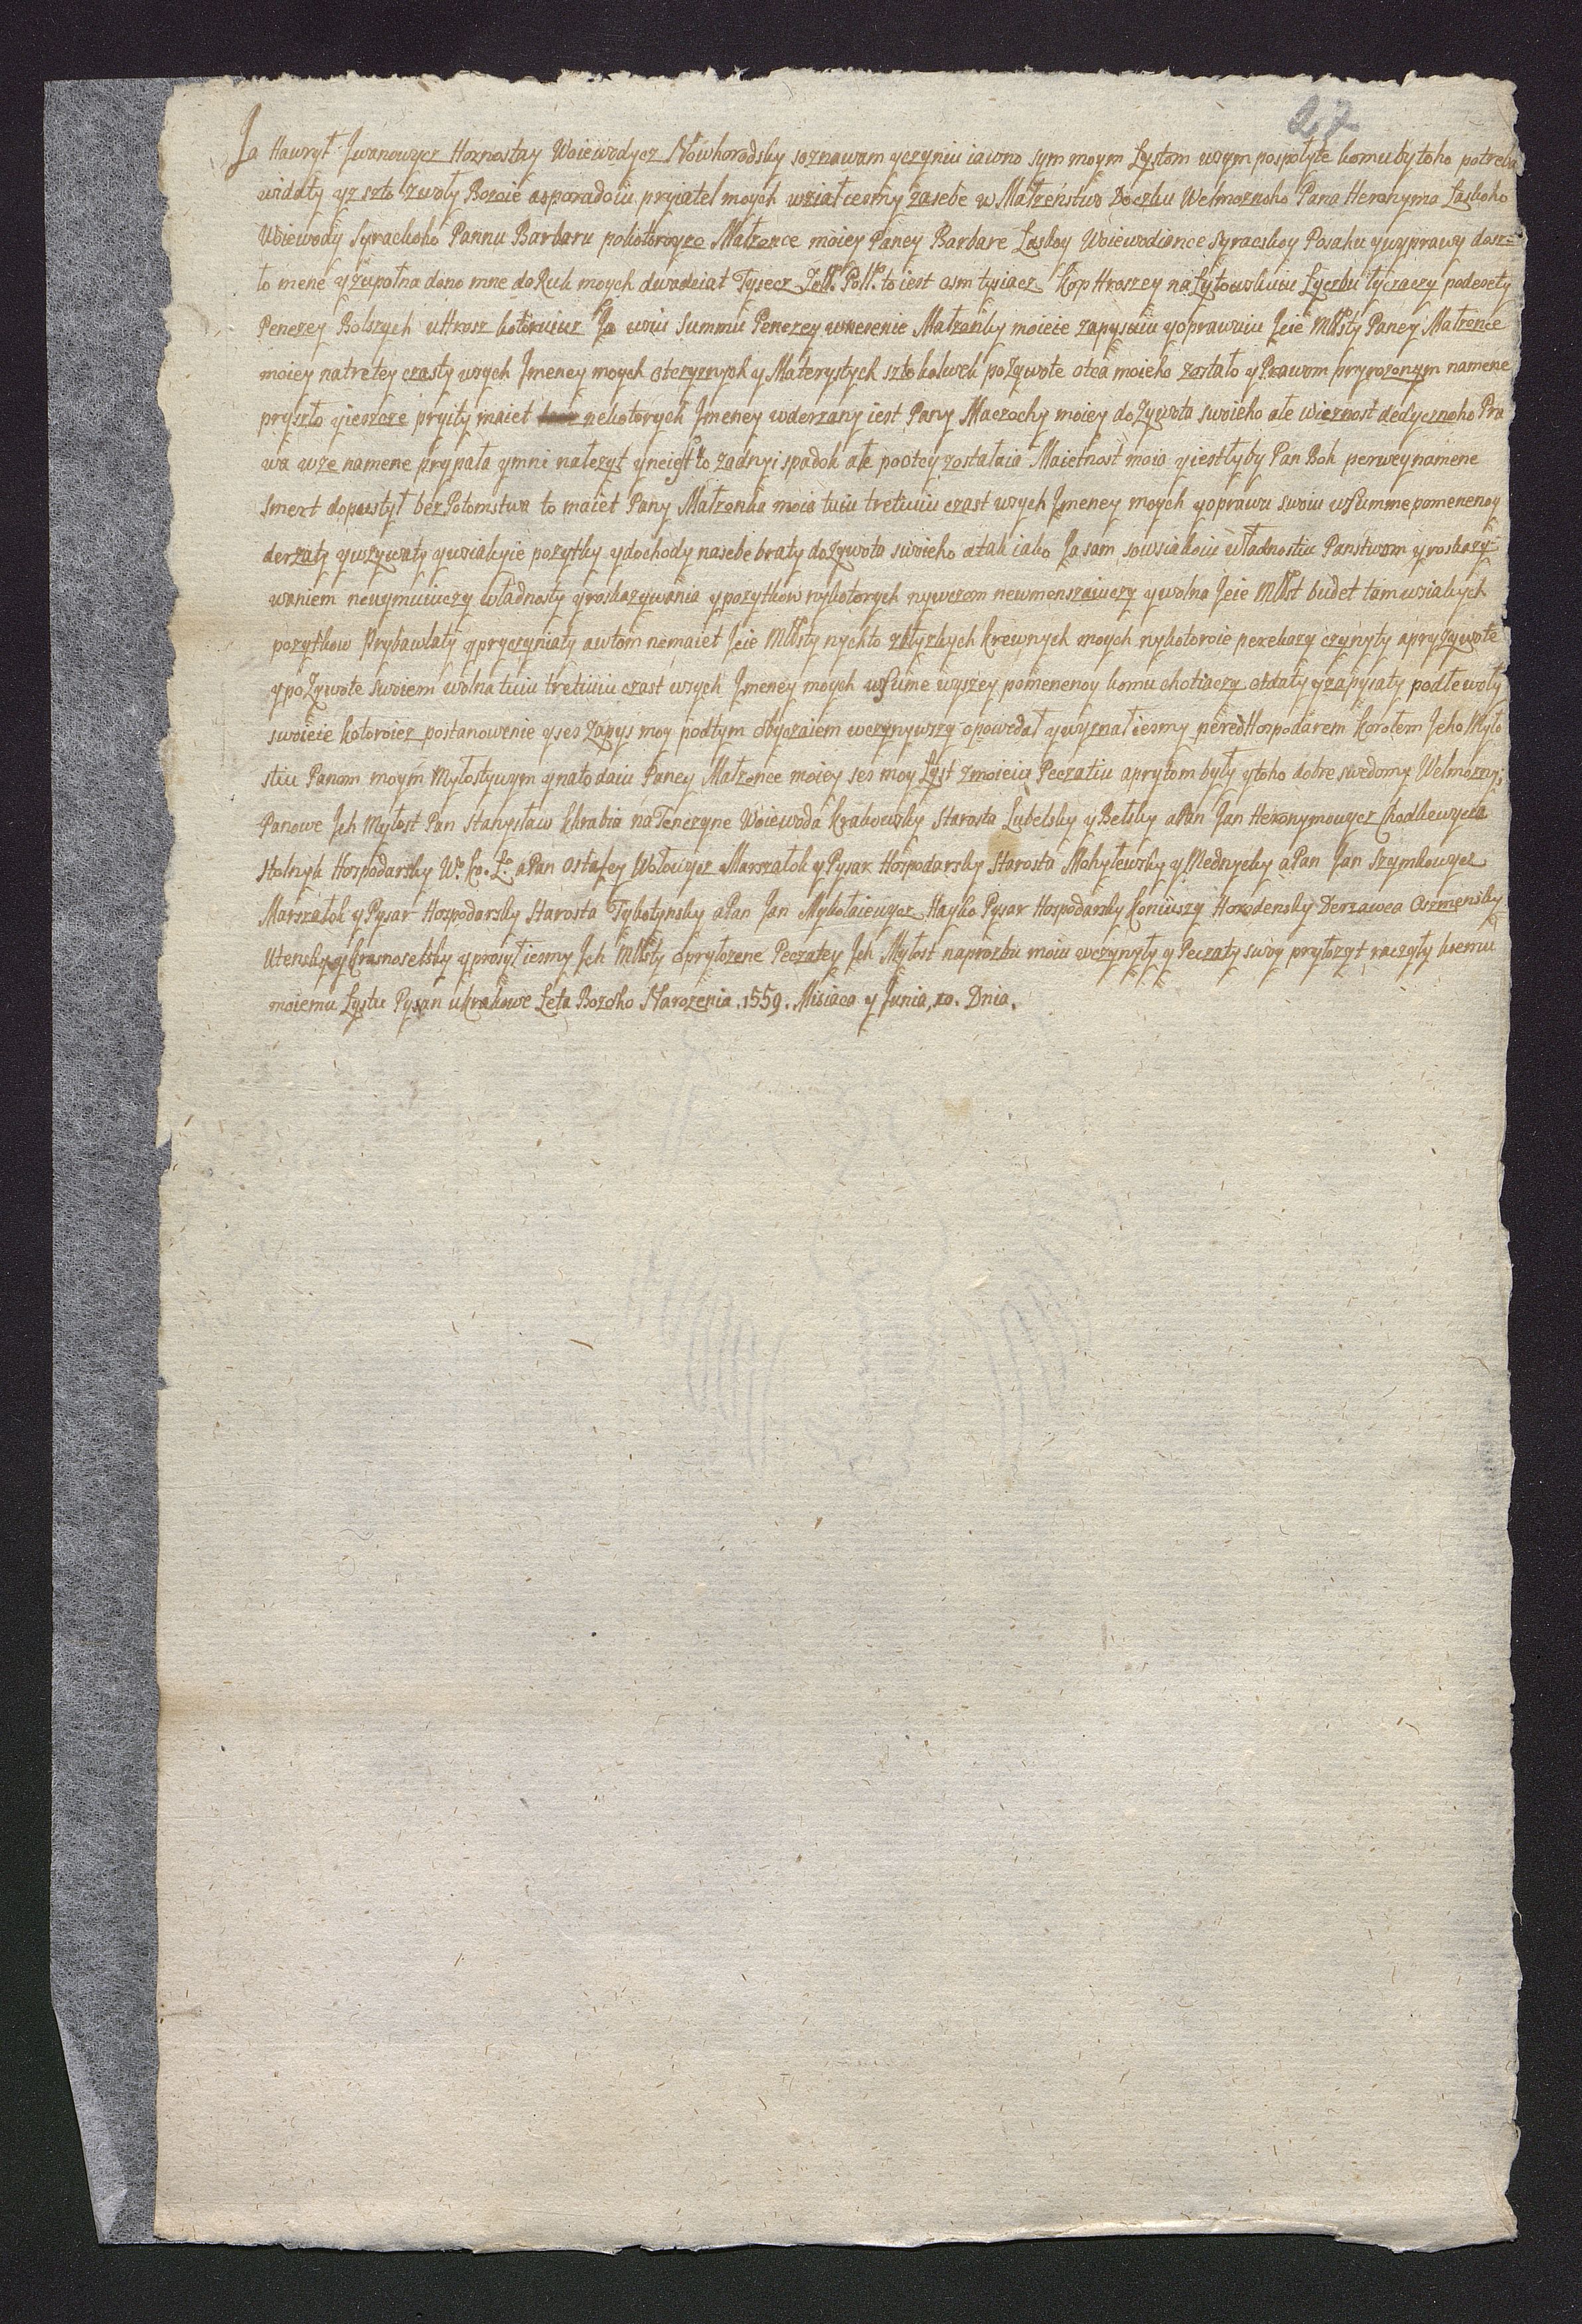 27
Ja Hawrył Jwanowycz Hornostay Woiewodycz Nowhorodsky soznawam yczyniu iawno sym moym Lystom wsym pospolyte komu by toho potreba
widaty yz szło zwoły Bozoie asporadoiu pryiatel moych wziałiesmy zasebe w Małzeństwo Doczku Welmoznoho Pana Heronyma Laskoho
Woiewody Syrackoho Pannu Barbaru pokotoroyze Małzonce moiey Paney Barbare Laskoy Woiewodionce Syraczkoy Posahu ywyprawy dosz=
ło mene yzupołna dano mne do Ruk moych dwadciat Tysecz Zoll. Poll. to iest osm tysiacz Kop Hroszey na Lytowskuiu Lyczbu łyczaczy podesety
Penezey Bolszych u Hrosz kotoruiuz Ja wsiu Summu Penezey wnesenie Małzonky moieie zapysuiu yoprawuiu Jeie Mllsty Paney Małzonce
moiey na tretey czasty wsych Jmeney moych Otczyznych y Materystych szto kolwek po Zywote otca moieho zostało y Prawom pryrozonym namene
pryszło yieszcze pryity maiet nekotorych Jmeney wderzany iest Pany Maczochy moiey do Zywota swoieho ale wiecznost dedycznoho Pra
wa wze namene prypała ymni nalezyt yneiest to zadnyi spadok ale po otcy zostałaia Maietnost moia yiestłyby Pan Boh perwey namene
Smert dopustył bez Potomstwa to maiet Pany Małzonka moia tuiu tretiuiu czast wsych Jmeney moych yoprawu swoiu w Summe pomenenoy
derzaty ywzywaty ywsiakyie pozytky ydochody nasebe braty do Zywota swoieho atak iako Ja sam sowsiakoiu władnostiu Panstwom yroskazy=
waniem neuymuiuczy władnosty yroskazywania ypozytkow nykotorych nyweczom neumenszaiuczy ywolna Jeie Mllst budet tam wsiakych
pozytkow Prybawlaty ypryczyniaty awtom nemaiet Jeie Mllsty nychto zblyzkych krewnych moych nykotoroie perekazy czynyty apry Zywote
ypo Zywote swoiem wolna tuiu tretiuiu czast wsych Jmeney moych w Sume wyszey pomenenoy komu chotiaczy otdaty yzapysaty podle woły
swoieie kotoroiez postanowenie yses Zapys moy podtym obyczaiem uczynywszy opowedał ywyznałiesmy pered Hospodarem Korolem Jeho Myło
stiu Panom moym Myłostywym ynato daiu Paney Małzonce moiey ses moy Lyst zmoieiu Peczatiu aprytom były ytoho dobre swedomy Welmoznyi
Panowe Jch Myłost Pan Stanysław Hrabia na Tenczyne Woiewoda Krakowsky Starosta Lubelsky y Bełsky a Pan Jan Heronymowycz Chodkewycza
Stolnyk Hospodarsky Wo. Ko. Lo. a Pan Ostafey Wołowycz Marszałok y Pysar Hospodarsky Starosta Mohylewsky y Mednycky a Pan Jan Szymkowycz
Marszałok y Pysar Hospodarsky Starosta Tykotynsky a Pan Jan Mykołaiewycz Hayko Pysar Hospodarsky Koniuszy Horodensky Derzawca Oszmensky
Utensky y Krasnoselsky yprosyłiesmy Jch Mllsty opryłozene Peczatey Jch Myłost naprozbu moiu uczynyły y Peczaty swoy pryłozyt raczyły ksemu
moiemu Lystu Pysan u Krakowe Leta Bozoho Narozenia. 1559. Misiaca y Junia, 20. Dnia.